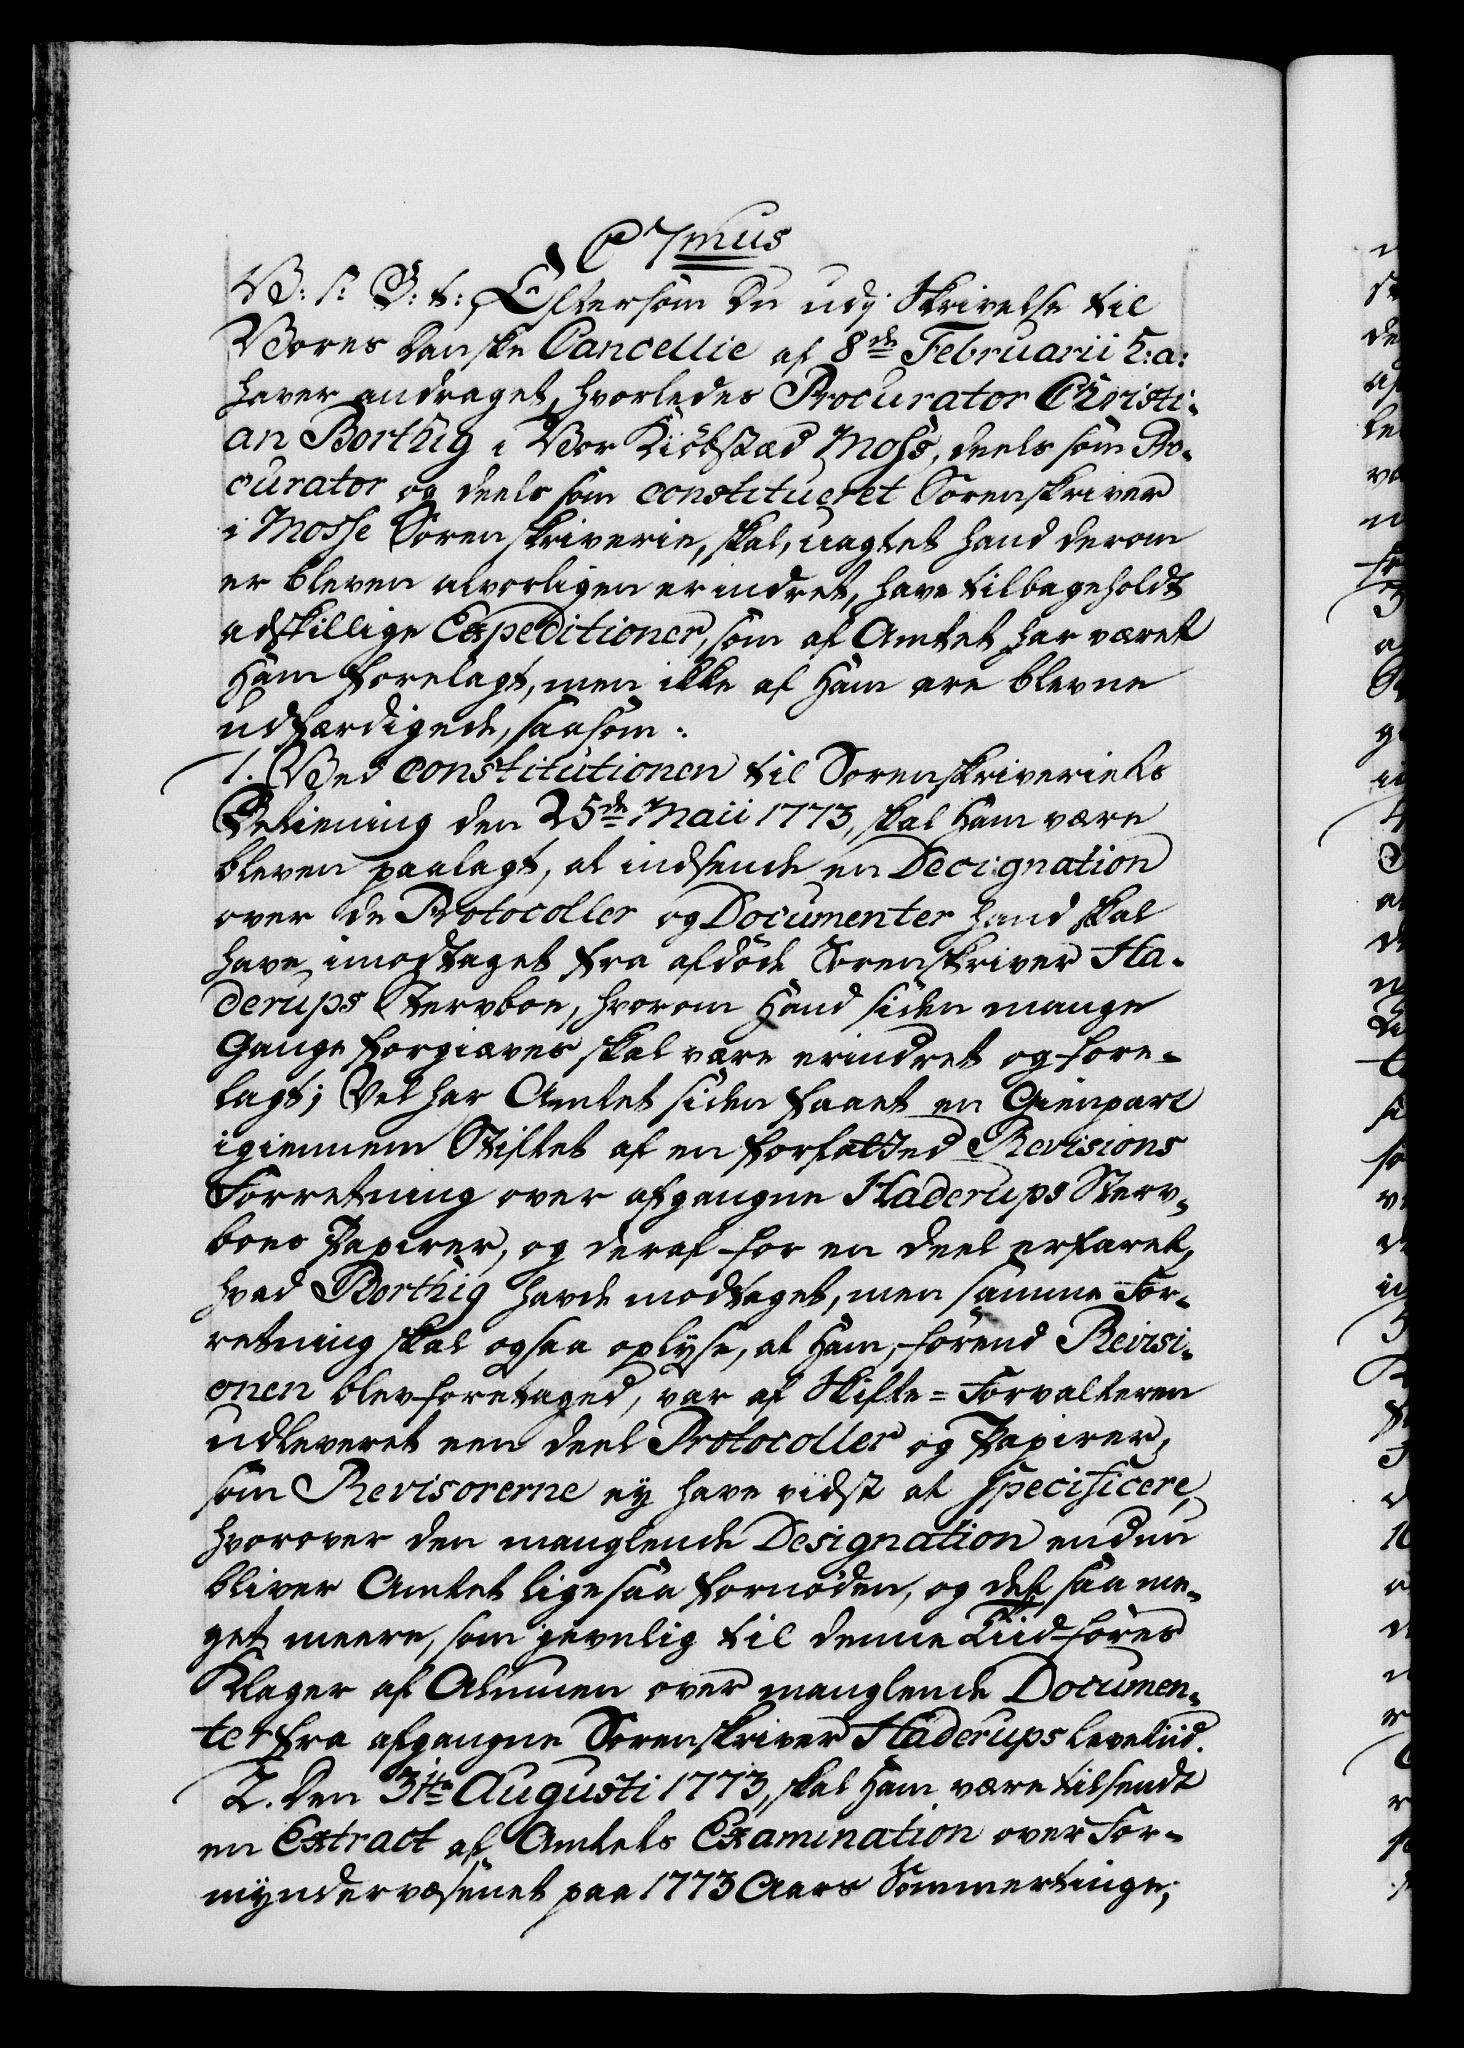 C 7mus
V: s: G: t: Eftersom du udj Skrivelse til
Vores danske Cancellie af 8de Februarii h: a:
haver andraget, hvorledes Procurator Christi-
an Borthig i Vor Kiöbstæd Moss, deels som Pro-
curator og deels som constitueret Sorenskriver
i Mosse Sorenskriverie, skal, uagtet hand derom
er bleven alvorligen erindret, have tilbageholdt
adskillige Expeditioner, som af Amtet har været
Ham forelagt, men ikke af Ham ere blevne
udfærdigede, saasom:
1. Ved constitutionen til Sorenskriveriets
Betiening den 25de Maii 1773, skal Ham være
bleven paalagt, at indsende en Decignation
over de Protocoller og Documenter hand skal
have imodtaget fra afdöde Sorenskriver Ha-
derups Stervboe, hvorom Hand siden mange
Gange forgiæves skal være erindret og fore-
lagt; Vel har Amtet siden faaet en Gienpart
igiennem Stiftet af en forfatted Revisions
Forretning over afgangne Haderups Sterv-
boes Papirer, og deraf for en deel erfaret,
hvad Borthig havde modtaget, men samme For-
retning skal ogsaa oplyse, at Ham, förend Revisi-
onen blev foretaged, var af Skifte-Forvalteren
udleveret een deel Protocoller og Papirer,
som Revisorerne ey have vidst at specificere,
hvorover den manglende Designation endnu
bliver Amtet ligesaa fornöden, og det saa me-
get meere, som jevnlig til denne Tiid föres
Klager af Almuen over manglende Documen-
ter fra afgangne Sorenskriver Haderups levetiid.
2. Den 31te Augusti 1773, skal Ham være tilsendt
en Extract af Amtets Examination over For-
mynderværsenet paa 1773 Aars Sommertinge;